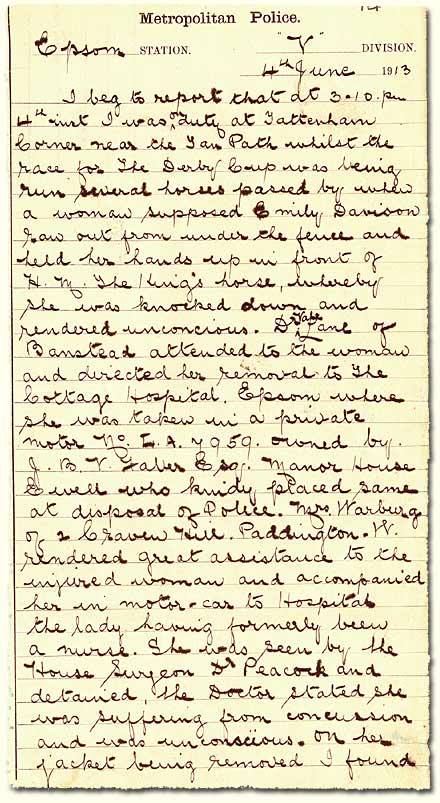 14
Metropolitan Police.
Epsom STATION. "V" DIVISION.
4th June 1913
I beg to report that at 3-10. pm
4th inst I was on duty at Tattenham
Corner near the Tan Path whilst the
race for The Derby Cup was being
run several horses passed by when
a woman supposed Emily Davison
ran out from under the fence and
held her hands up in front of
H. M. The King's horse, whereby
she was knocked down and
rendered unconcious. Dr Vale Jane of
Banstead attended to the woman
and directed her removal to The
Cottage Hospital, Epsom where
she was taken in a private
motor No. L.A. 7959. owned by.
J. B. V. Faber Esq. Manor House
Ewell who kindly placed same
at disposal of Police. Mrs Warburg
of 2 Craven Hill. Paddington. W.
rendered great assistance to the
injured woman and accompanied
her in motor-car to Hospital
the lady having formerly been
a nurse. She was seen by the
House Surgeon Dr Peacock and
detained, the Doctor stated she
was suffering from concussion
and was unconscious. On her
jacket being removed I found